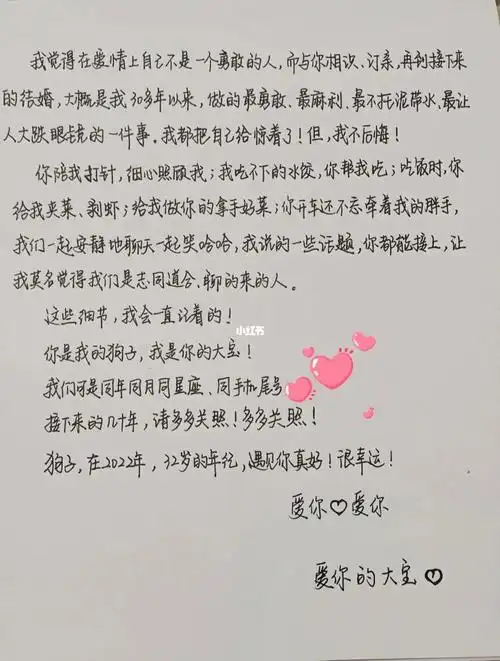 我觉得在爱情上自己不是一个勇敢的人，而与你相识、订亲，再到接下来
的结婚，大概是我30多年以来，做的最勇敢、最麻利、最不拖泥带水、最让
人大跌眼镜的一件事。我都把自己给惊着了！但，我不后悔！
你陪我打针，细心照顾我；我吃不下的水饺，你帮我吃；吃饭时，你
给我夹菜、剥虾；给我做你的拿手好菜；你开车还不忘牵着我的胖手，
我们一起安静地聊天一起笑哈哈，我说的一些话题，你都能接上，让
我莫名觉得我们是志同道合、聊的来的人。
这些细节，我会一直记着的！
小红书
你是我的狗子，我是你的大宝！
我们可是同年同月同星座、同手机尾号
接下来的几十年，请多多关照！多多关照！
狗子，在2022年，32岁的年纪，遇见你真好！很幸运！
爱你♡爱你
爱你的大宝♡